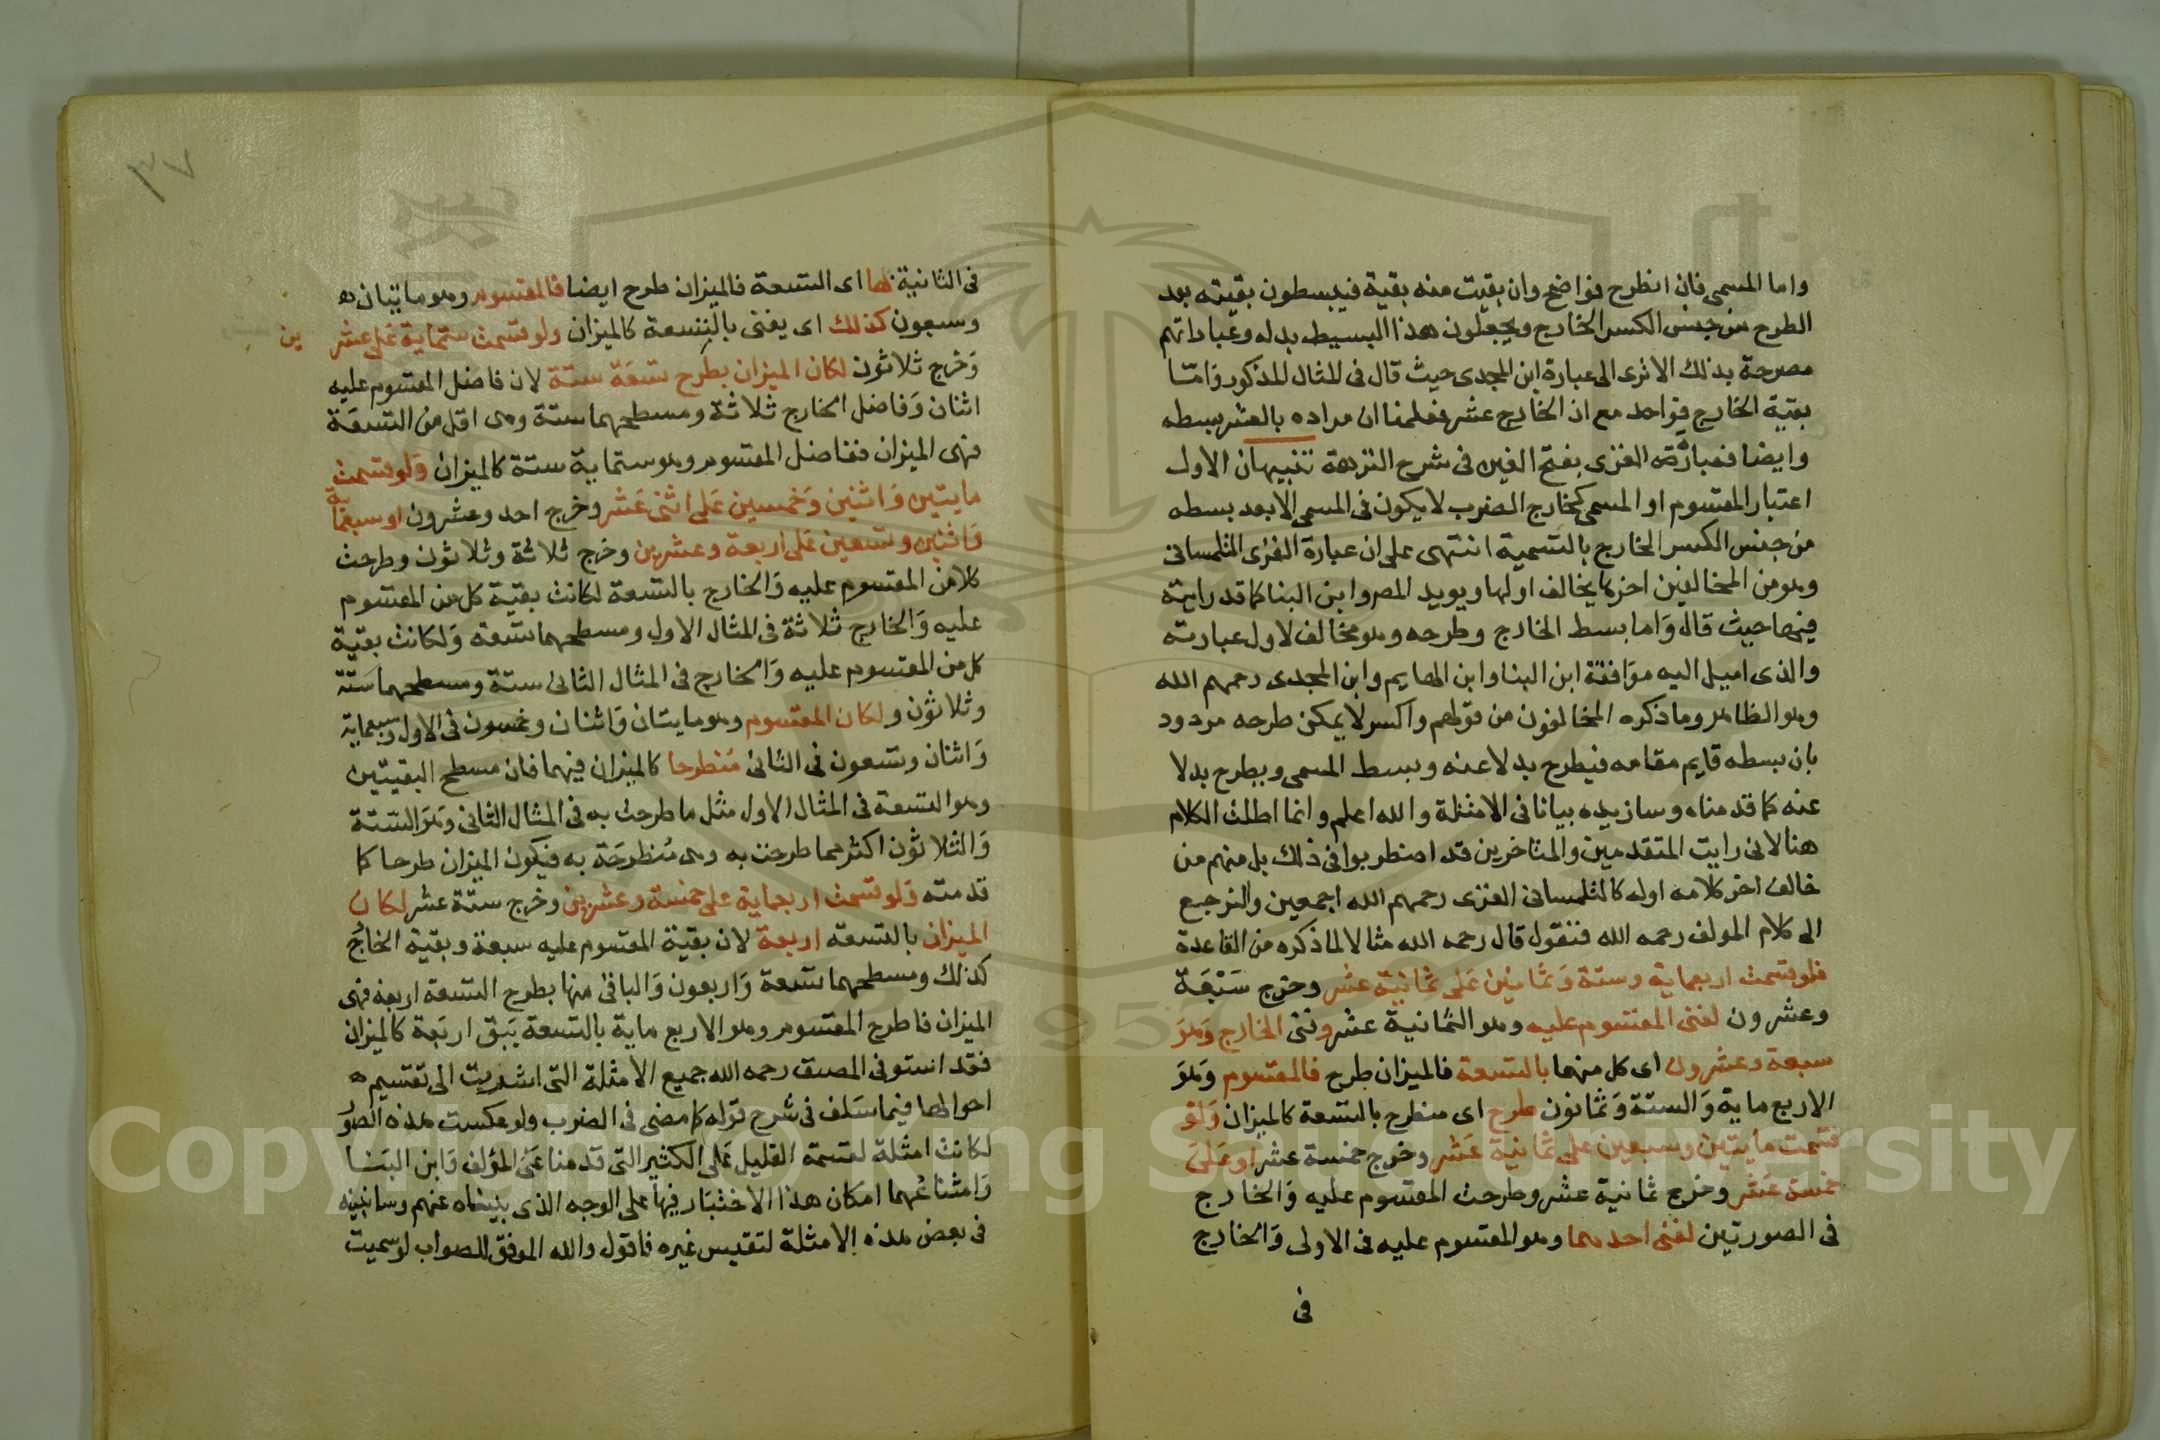 واما المسمى فان انطرح فواضح وان بقيت منه بقية فيبسطون بقيته بعد
الطرح من جنس الكسر الخارج ويجعلون هذا البسيط بدله وعباراتهم
مصرحة بذلك الا ترى الى عبارة ابن المجدى حيث قال فى المثال المذكور وَامّا
بقية الخارج فواحد مع ان الخارج عشر فعلمنا ان مراده بالعشر بسطه
وايضا فعبارة الغزى بفتح الغين فى شرح النزهة تنبيهان الاول
اعتبار المقسوم او المسمى كخارج الضرب لا يكون فى المسمى الا بعد بسطه
من جنس الكسر الخارج بالتسمية انتهى على ان عبارة الغزى التلمسانى
وهو من المخالفين اخرها يخالف اولها ويويد المص وابن البنا كما قد رايته
فيها حيث قال وَاما بسط الخارج وطرحه وهو مخالف لاول عبارته
والذى اميل اليه موَافقة ابن البنا وابن الهايم وابن المجدى رحمهم الله
وهو الظاهر وما ذكره المخالفون من قولهم واكسر لا يمكن طرحه مردود
بان بسطه قايم مقامه فيطرح بدلا عنه وبسط المسمى ويطرح بدلا
عنه كما قدمناه وسازيده بيانا فى الامثلة والله اعلم وانما اطلت الكلام
هنا لانى رايت المتقدمين والمتاخرين قد اضطربوا فى ذلك بل منهم من
خالف اخر كلامه اوله كالتلمسانى الغزى رحمهم الله اجمعين والنرجع
الى كلام المولف رحمه الله فنقول قال رحمه الله مثالا لما ذكره من القاعدة
فلو قسمت اربعماية وستة وَثمانين عَلى ثمانية عشر وخرج سَبْعَة
وعشرون لفنى المقسوم عليه وهو الثمانية عشر وفنى الخارج وَهوَ
سبعة وعشرون اى كل منهما بالتسعة فالميزان طرح فالمقسوم وَهوَ
الاربع ماية وَالستة وَثمانون طرح اى منطرح بالتسعة كالميزان وَلو
قسمت مايتين وسبعين على ثمانية عَشر وخرج خمسة عشر او عَلىَ
خمسة عَشر وخرج ثمانية عشر وطرحت المقسوم عليه وَالخارج
فى الصورتين لفنى احدهما وهو المقسوم عليه فى الاولى وَالخارج
فى
٣٧
فى الثانية بها اى التسعة فالميزان طرح ايضا فالمقسوم وهو مايتان
وسبعون كذلك اى يفنى بالتسعة كالميزان ولو قسمت ستماية عَلى عشرين
وَخرج ثلاثون لكان الميزان بطرح تسعَة ستة لان فاضل المقسوم عليه
اثنان وَفاضل الخارج ثلاثة ومسطحهما ستة وهى اقل من التسعَة
فهى الميزان ففاضل المقسوم وهو ستماية ستة كالميزان وَلو قسمت
مايتين وَاثنين وَخمسين عَلى اثنى عَشر وخرج احد وعشرون او سبعماية
وَاثنين وتسعين عَلى اربعة وعشرين وخرج ثلاثة وثلاثون وطرحت
كلا من المقسوم عليه وَالخارج بالتسعة لكانت بقية كل من المقسوم
عليه وَالخارج ثلاثة فى المثال الاول ومسطحهما تسعة وَلكانت بقية
كل من المقسوم عليه وَالخارج فى المثال الثانى ستة ومسطحهما ستة
وثلاثون ولكان المقسوم وهو مايتان وَاثنان وخمسون فى الاول وسبعماية
وَاثنان وتسعون فى الثانى مُنطرحا كالميزان فيهما فان مسطح البقيتين
وهو التسعة فى المثال الاول مثل ما طرحت به فى المثال الثانى وَهوَ الستة
وَالثلاثون اكثر مما طرحت به وهى مُنطرحَة به فيكون الميزان طرحا كما
قدمته وَلو قسمت اربعماية على خمسة وعشرين وخرج ستّة عشر لكان
الميزان بالتسعة اربعة لان بقية المقسوم عليه سبعة وبقية الخارج
كذلك ومسطحهما تسعة وَاربعون وَالباقى منها بطرح التسعة اربعة فهى
الميزان فاطرح المقسوم وهو الاربع ماية بالتسعة يَبق اربَعة كالميزان
فقد استوفى المصنف رحمه الله جميع الامثلة التى اشرت الى تقسيم
احوالها فيما سَلف فى شرح قوله كما مضى فى الضرب ولو عكست هذه الصور
لكانت امثلة لقسمة القليل عَلى الكثير التى قدمنا عَن المؤلف وَابن البَنا
وَامثالهما امكان هذا الاختبَار فيها على الوجه الذى بيناه عنهم وسابينه
فى بعض هذه الامثلة لتقيس غيره فاقول والله الموفق للصواب لو سميت